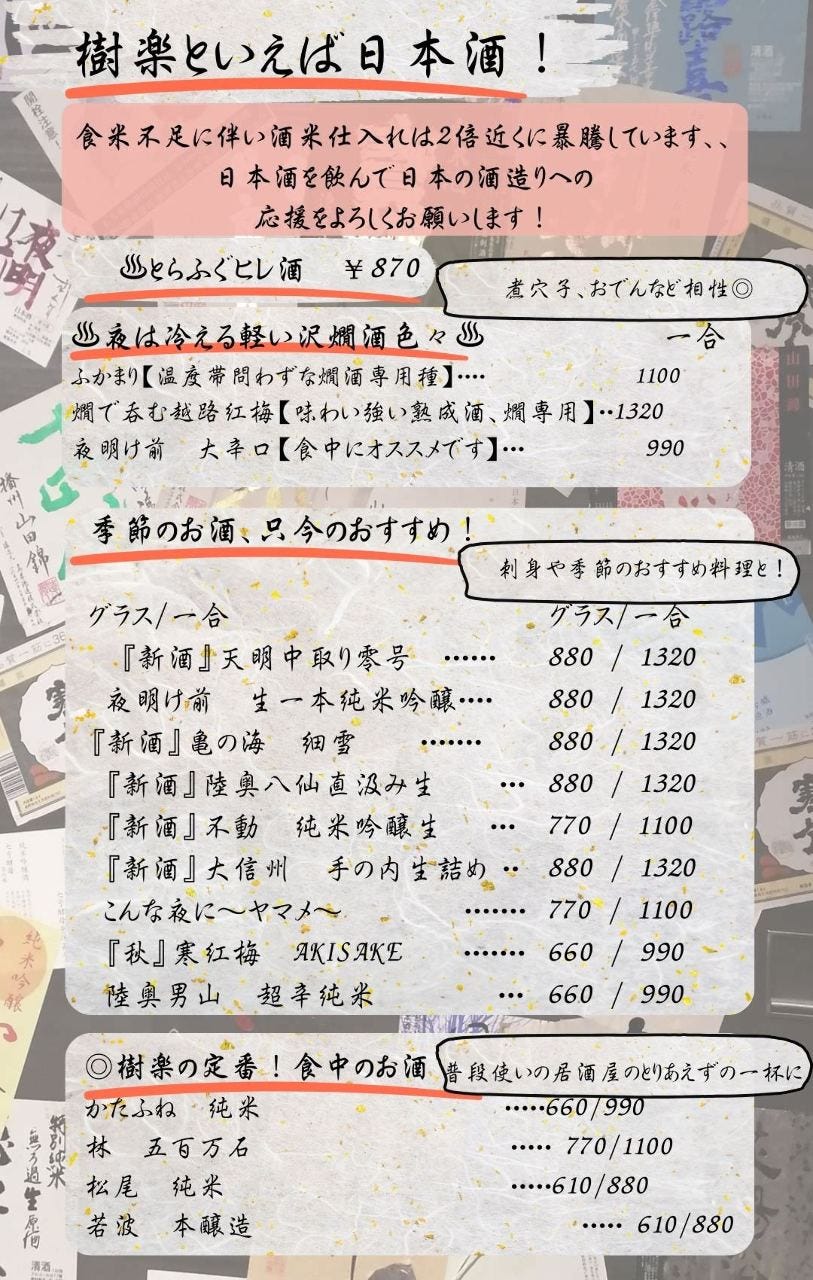 樹楽といえば日本酒！
食米不足に伴い酒米仕入れは2倍近くに暴騰しています、、
日本酒を飲んで日本の酒造りへの
応援をよろしくお願いします！
♨とらふぐヒレ酒　￥870
煮穴子、おでんなど相性◎
♨夜は冷える軽い沢燗酒色々♨　一合
ふかまり【温度帯問わずな燗酒専用種】････ 1100
燗で呑む越路紅梅【味わい強い熟成酒、燗専用】･･1320
夜明け前　大辛口【食中にオススメです】･･･ 990
季節のお酒、只今のおすすめ！
刺身や季節のおすすめ料理と！
グラス/一合　グラス/一合
『新酒』天明中取り零号　･･････ 880 / 1320
夜明け前　生一本純米吟醸････ 880 / 1320
『新酒』亀の海　細雪　･･･････ 880 / 1320
『新酒』陸奥八仙直汲み生　･･･ 880 / 1320
『新酒』不動　純米吟醸生　･･･ 770 / 1100
『新酒』大信州　手の内生詰め ･･ 880 / 1320
こんな夜に〜ヤマメ〜　･･･････ 770 / 1100
『秋』寒紅梅　AKISAKE　･･･････ 660 / 990
陸奥男山　超辛純米　･･･ 660 / 990
◎樹楽の定番！食中のお酒
普段使いの居酒屋のとりあえずの一杯に
かたふね　純米　･････660/990
林　五百万石　･････ 770/1100
松尾　純米　･････610/880
若波　本醸造　･････ 610/880